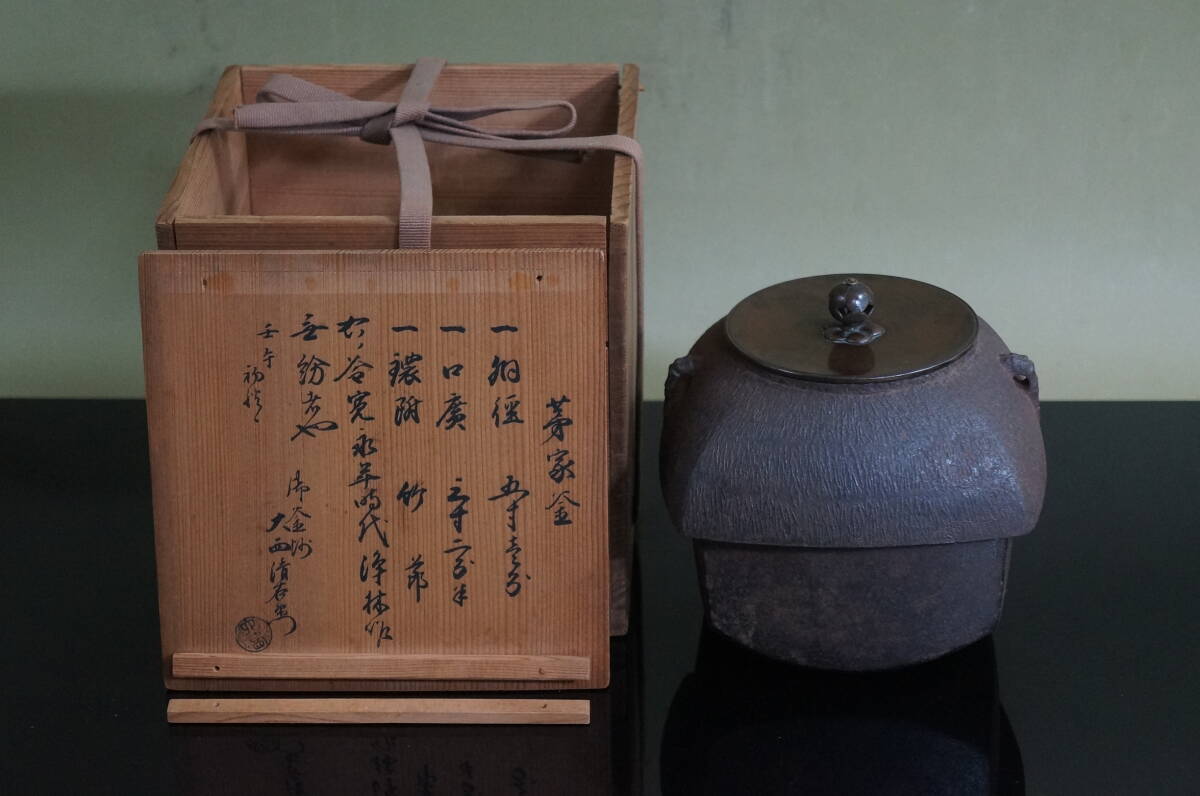 茅家釜
一 胴径 五寸壱分
一 口廣 三寸二分半
一 鐶附 竹節
右ハ谷寛永年時代浄林作
無紛者也
壬午 初
御釜師
大西清右衛門